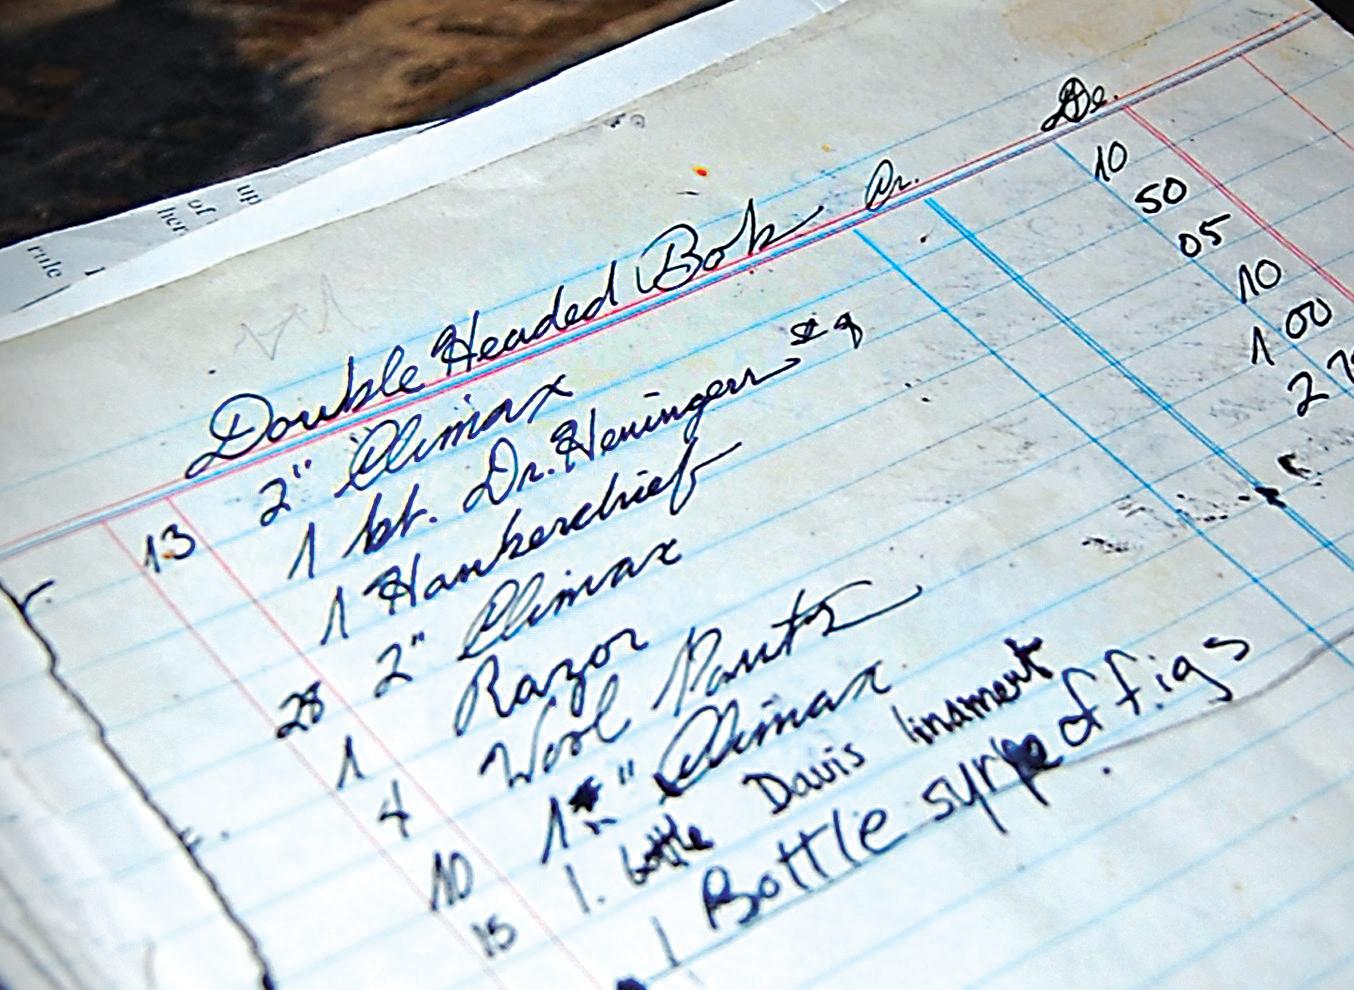 up
of
her
rule 1
Double Headed Bob Cr. De.
13 2" Climax 10
1 bt. Dr. Heningers 50
1 Hankerchief 05
28 2" Climax 10
1 Razor 1 00
4 Wool Pants 2
10 1 " Climax
15 1. bottle Davis linament
1 Bottle syrpe of figs